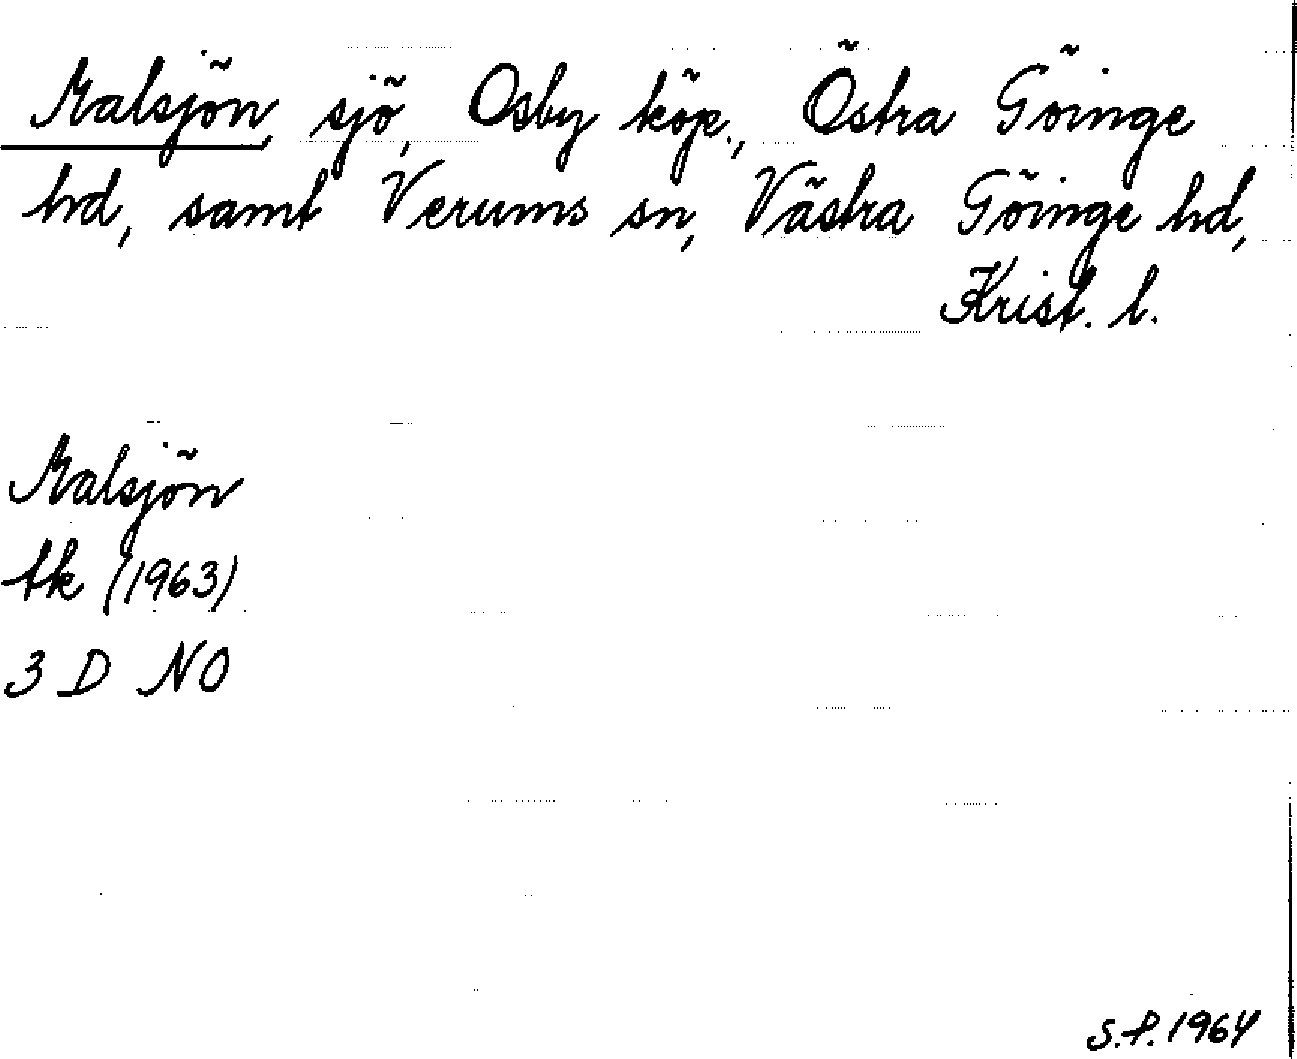 Malsjön, sjö, Osby köp., Östra Göinge
hd, samt Verums sn, Västra Göinge hd,
Krist. l.
Malsjön
tk (1963)
3 D NO
S.P. 1964